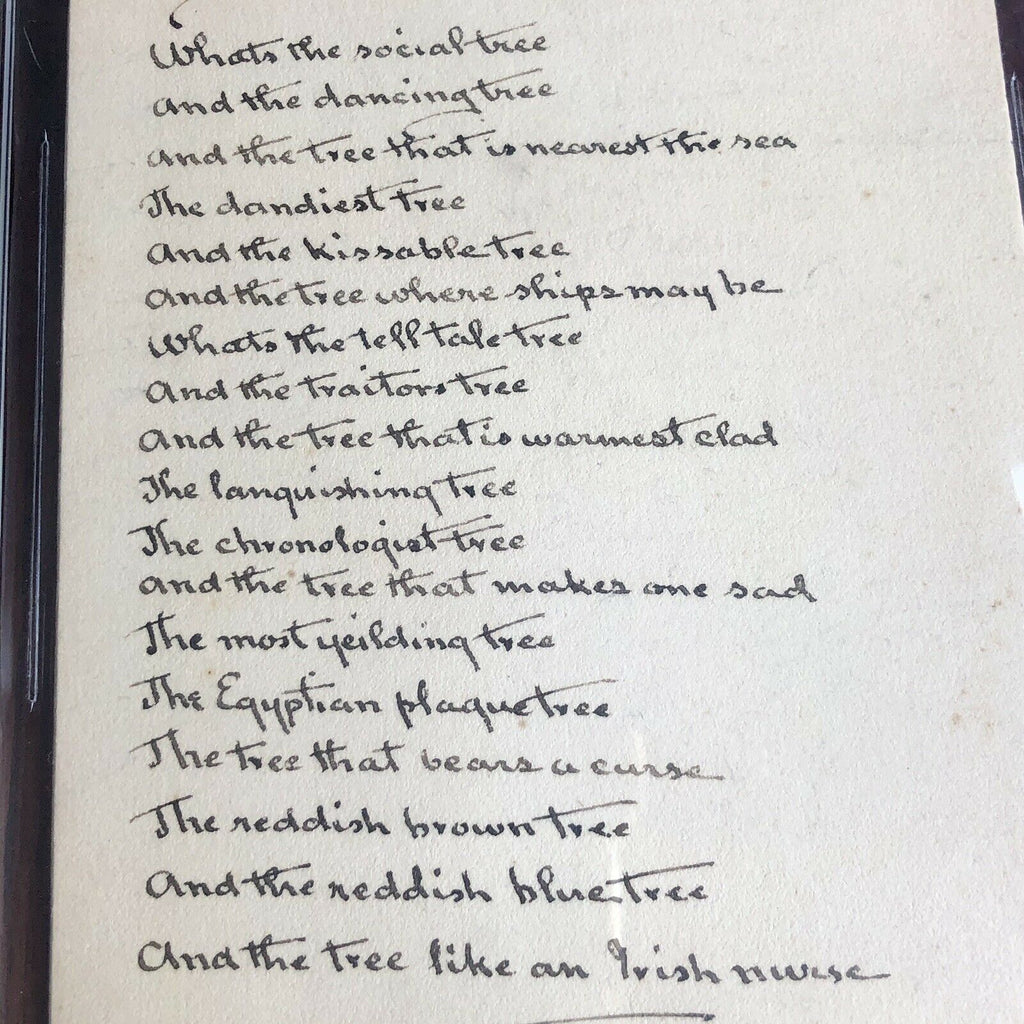 Whats the social tree
And the dancing tree
And the tree that is nearest the sea
The dandiest tree
And the kissable tree
And the tree where ships may be
Whats the tell tale tree
And the traitors tree
And the tree that is warmest clad
The languishing tree
The chronologist tree
And the tree that makes one sad
The most yeilding tree
The Egyptian plague tree
The tree that bears a curse
The reddish brown tree
And the reddish blue tree
And the tree like an Irish nurse